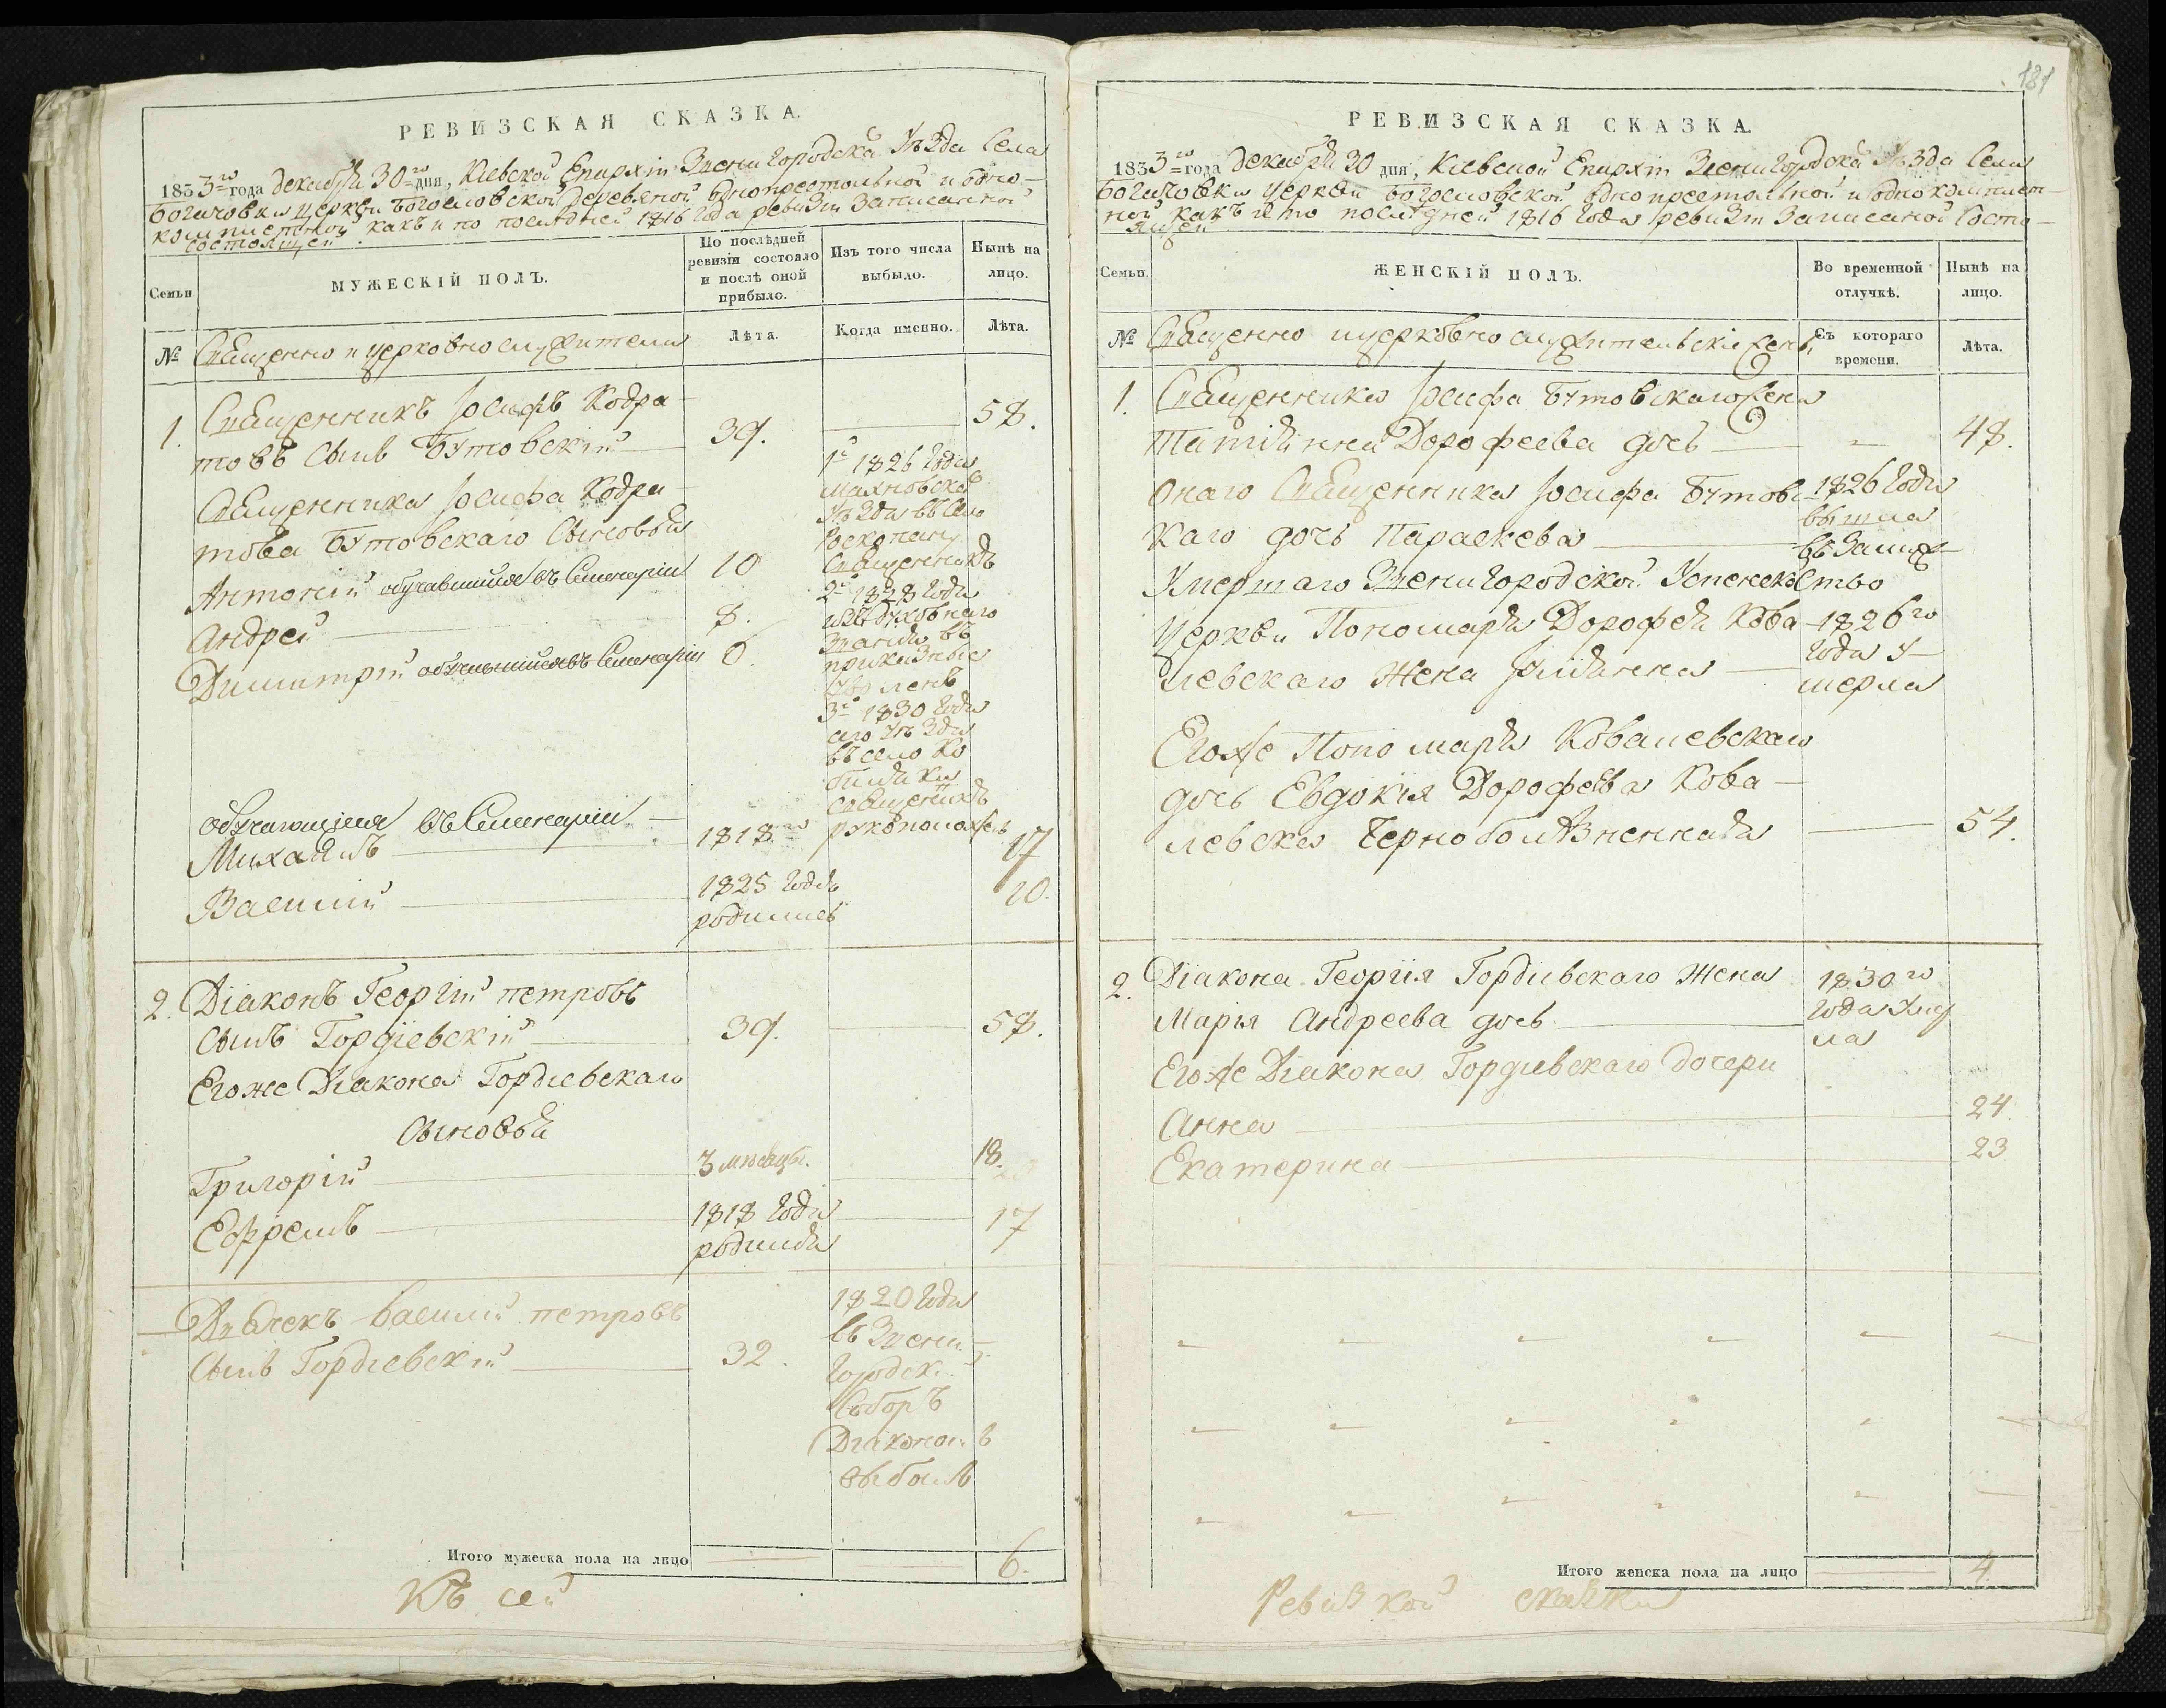 РЕВИЗСКАЯ СКАЗКА.
1833го года декабря 30го дня, Кіевской Епархіи Звенигородской Уѣзда Села
Богачовки церкви Богословской деревяной однопрестольной и одно-
комплетной какъ и по послѣдней 1816 года ревизіи записанной
состоящей
Семьи.
МУЖЕСКІЙ ПОЛЪ.
По послѣдней
ревизіи состояло
и послѣ оной
прибыло.
Изъ того числа
выбыло.
Нынѣ на
лицо.
№
Священно и церковнослужители
Лѣта.
Когда именно.
Лѣта.
1.
Священникъ Іосифъ Кодра-
товъ сынъ Бутовскій
39.
58.
Священника Іосифа Кодра-
това Бутовскаго сыновья
Антоній обучавшийся въ Семинаріи
10
Андрей
8.
Димитрій обучавшийся въ Семинаріи
6.
1й 1826 года
Махновской
Уѣзда въ село
Священникъ
2й 1828 года
изъ духовнаго
званія въ
приказные
уволенъ
3й 1830 года
сего Уѣзда
въ село Ко
биляки
священникъ
рукоположенъ
обучающиеся въ Семинаріи
Михаилъ
1818го
17
Василій
1825 года
родились
10.
2.
Діаконъ Георгій петровъ
сынъ Гордіевскій
39.
58.
Егоже Діакона Гордіевскаго
сыновья
Григорій
3 месяцы.
18.
Ефремъ
1818 года
родился
17
Дьячекъ Василій петровъ
сынъ Гордіевскій
32.
1820 года
въ Звени-
городскій
Соборъ
Діакономъ
выбылъ
Итого мужеска пола на лицо
6.
Къ сей
181
РЕВИЗСКАЯ СКАЗКА.
1833го года декабря 30 дня, Кіевской Епархіи Звенигородской Уѣзда Села
Богачовки церкви Богословской однопрестольной и однокомплет-
ной какъ и по послѣдней 1816 года ревизіи записаной состо-
ящей
Семьи.
ЖЕНСКІЙ ПОЛЪ.
Во временной
отлучкѣ.
Нынѣ на
лицо.
№
Священно и церковнослужительскіе жены
Съ котораго
времени.
Лѣта.
1.
Священника Іосифа Бутовскаго жена
Татіянна Дорофеева дочь
48.
Онаго Священника Іосифа Бутовс-
каго дочь Параскева
1826 года
вышла
въ замуж-
ство
Умершаго Звенигородской Успенской
церкви Пономаря Дорофея Кова-
левскаго жена Іулианна
1826го
года у-
мерла
Егоже Пономаря Ковалевскаго
дочь Евдокія Дорофеева Кова-
левска
54.
2.
Діакона Георгія Гордіевскаго жена
Марія Андреева дочь
1830го
года умер
ла
Егоже Діакона Гордіевскаго дочери
Анна
24
Екатерина
23
Итого женска пола на лицо
4.
Ревизкой сказки